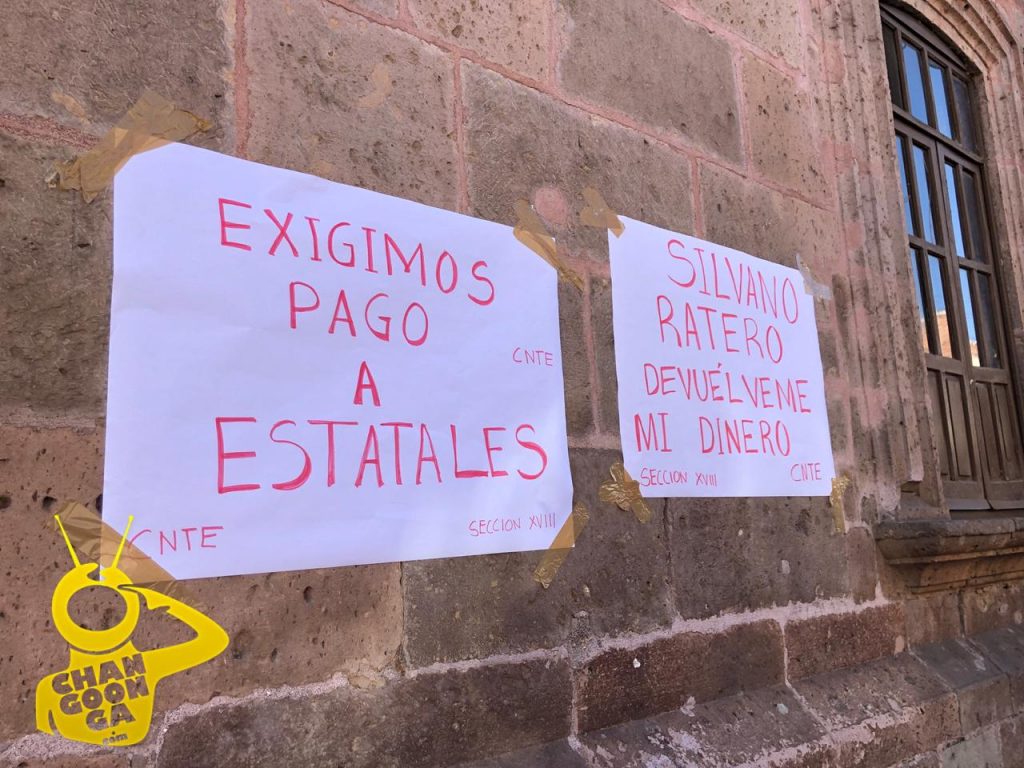 EXIGIMOS
PAGO
A
ESTATALES
CNTE
CNTE
SECCION XVIII
SILVANO
RATERO
DEVUÉLVEME
MI DINERO
SECCION XVIII
CNTE
CHAN
GOON
GA
.com